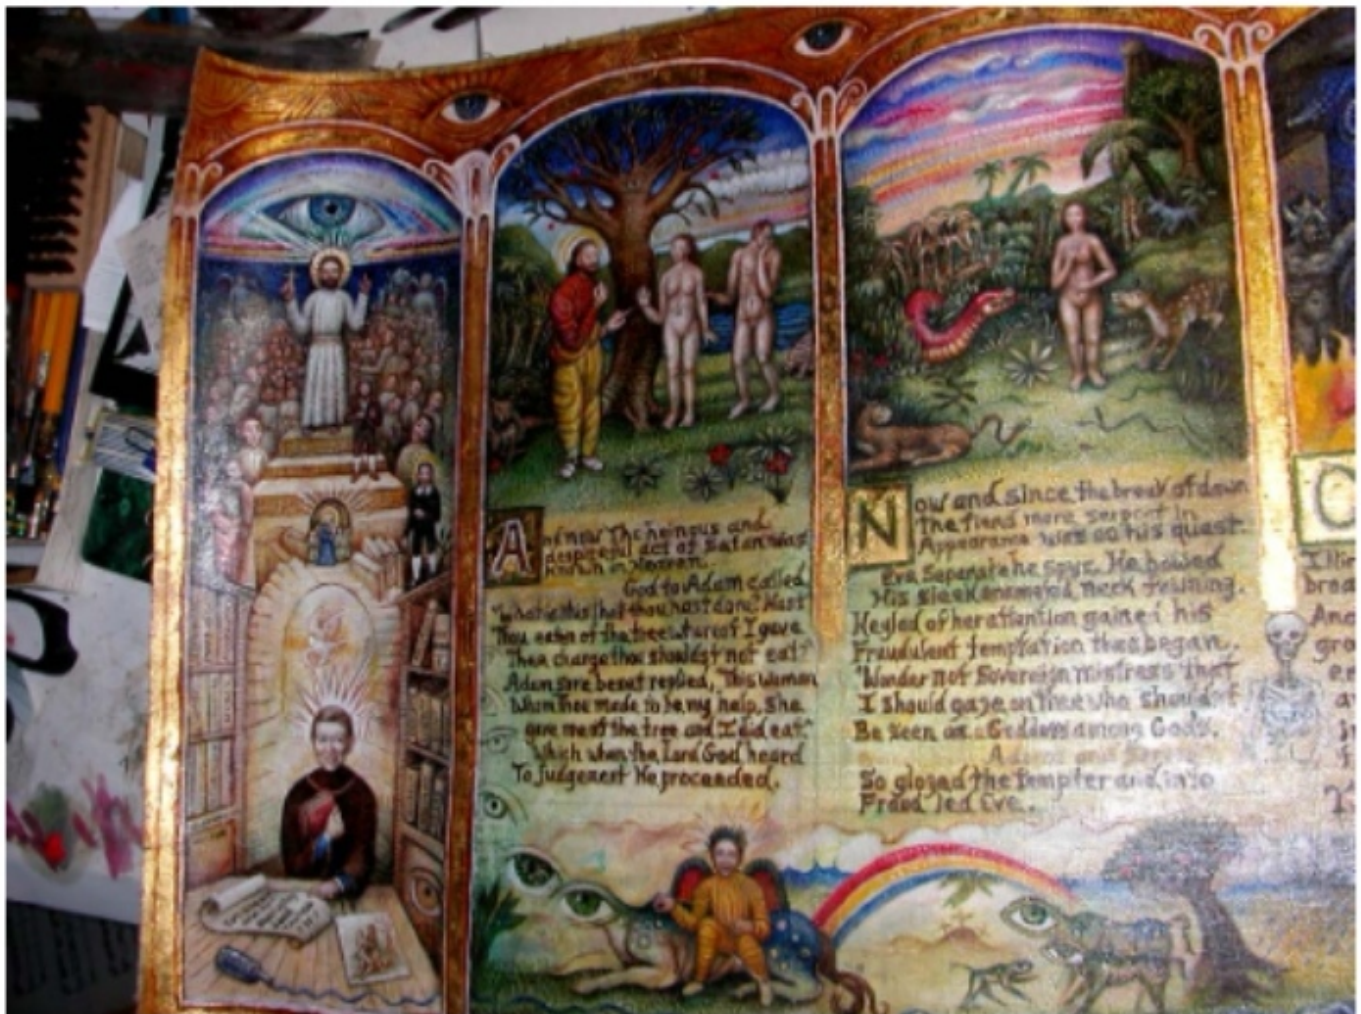 And now the heinous and
despiteful act of Satan was
known in Heaven.
God to Adam called
"What is this that thou hast done? Hast
Thou eaten of the tree whereof I gave
Thee charge thou shouldst not eat?"
Adam sore beset replied, "This woman
Whom thee made to be my help, She
gave me of the tree and I did eat."
Which when the Lord God heard
To judgement He proceeded.
Now and since the break of dawn
The fiend mere serpent in
Appearance was on his quest
Eve Separate he spys. He bowed
His sleek enamered neck fawning.
He glad of her attention gained his
Fraudulent temptation thes began.
"Wonder not Sovereign mistress that
I should gaze on thee who should
Be seen as a Goddess among Gods.
So glozed the tempter and into
Fraud led Eve.
C